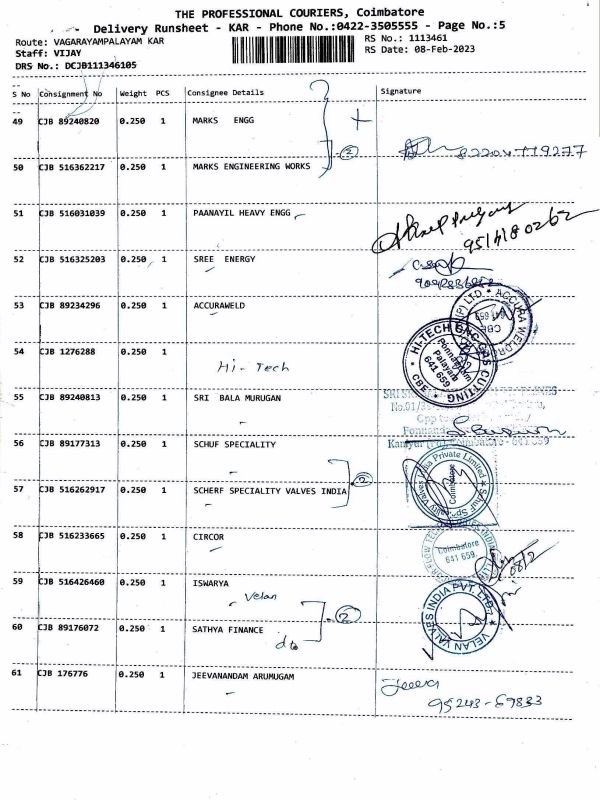 THE PROFESSIONAL COURIERS, Coimbatore
Delivery Runsheet - KAR - Phone No.:0422-3505555 - Page No.:5
Route: VAGARAYAMPALAYAM KAR
RS No.: 1113461
Staff: VIJAY
RS Date: 08-Feb-2023
DRS No.: DCJB111346105
S No Consignment No Weight PCS Consignee Details Signature
49 CJB 89240820 0.250 1 MARKS ENGG
2
50 CJB 516362217 0.250 1 MARKS ENGINEERING WORKS
51 CJB 516031039 0.250 1 PAANAYIL HEAVY ENGG
52 CJB 516325203 0.250 1 SREE ENERGY
53 CJB 89234296 0.250 1 ACCURAWELD
54 CJB 1276288 0.250 1
Hi-Tech
HI-TECH CNC GAS CUTTING
Ponnandam
Palayam
641 659.
CBE
55 CJB 89240813 0.250 1 SRI BALA MURUGAN
56 CJB 89177313 0.250 1 SCHUF SPECIALITY
2
57 CJB 516262917 0.250 1 SCHERF SPECIALITY VALVES INDIA
Coimbatore
58 CJB 516233665 0.250 1 CIRCOR
Coimbatore
641 659.
59 CJB 516426460 0.250 1 ISWARYA
Velan
2
VELAN VALVES INDIA PVT. LTD.
60 CJB 89176072 0.250 1 SATHYA FINANCE
do
61 CJB 176776 0.250 1 JEEVANANDAM ARUMUGAM
Jeeva
95243-69833